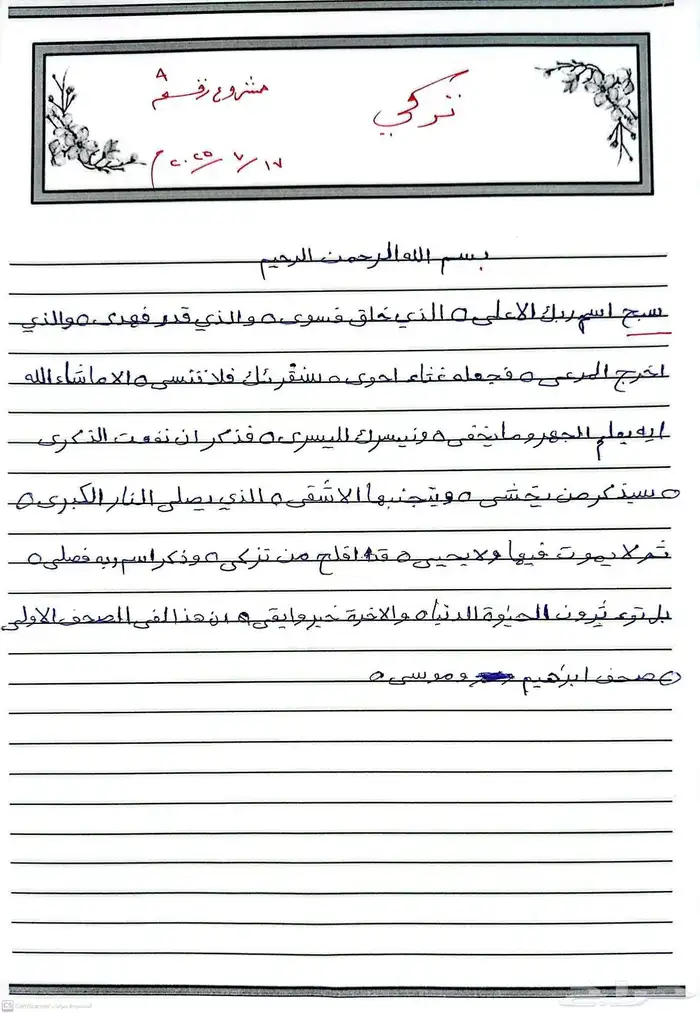 مشروع رقم ٨
تركي
١٧ / ٧ / ٢٠٢٥ م
بسم الله الرحمن الرحيم
سبح اسم ربك الاعلى ه الذي خلق فسوى ه والذي قدر فهدى ه والذي
اخرج المرعى ه فجعله غثاء احوى ه سنقرئك فلا تنسى ه الا ماشاء الله
انه يعلم الجهر وما يخفى ه ونيسرك لليسرى ه فذكر ان نفعت الذكرى
ه سيذكر من يخشى ه ويتجنبها الاشقى ه الذي يصلى النار الكبرى ه
ثم لا يموت فيها ولا يحيى ه قد افلح من تزكى ه وذكر اسم ربه فصلى ه
بل تؤثرون الحيوة الدنيا ه والاخرة خير وابقى ه ان هذا لفي الصحف الاولى
ه صحف ابرهيم وموسى ه
CamScanner